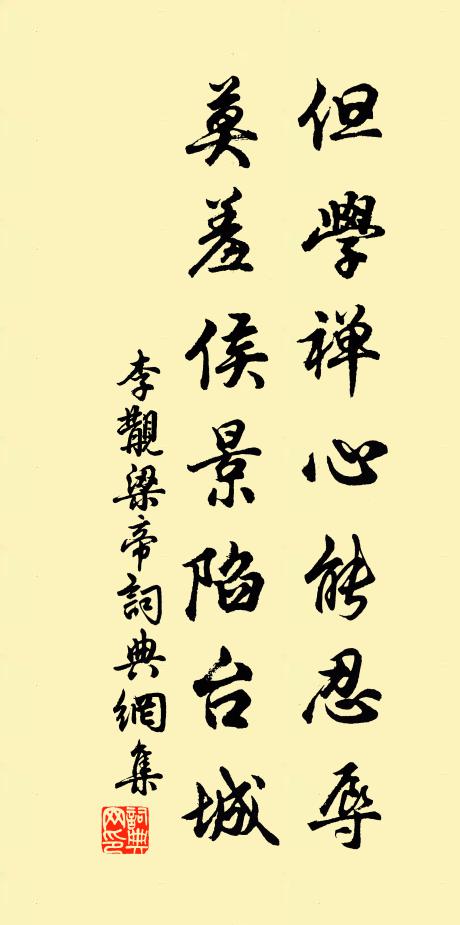 但學禪心能忍辱
莫羞侯景陷台城
李覯梁帝詞典網集
詞典网印